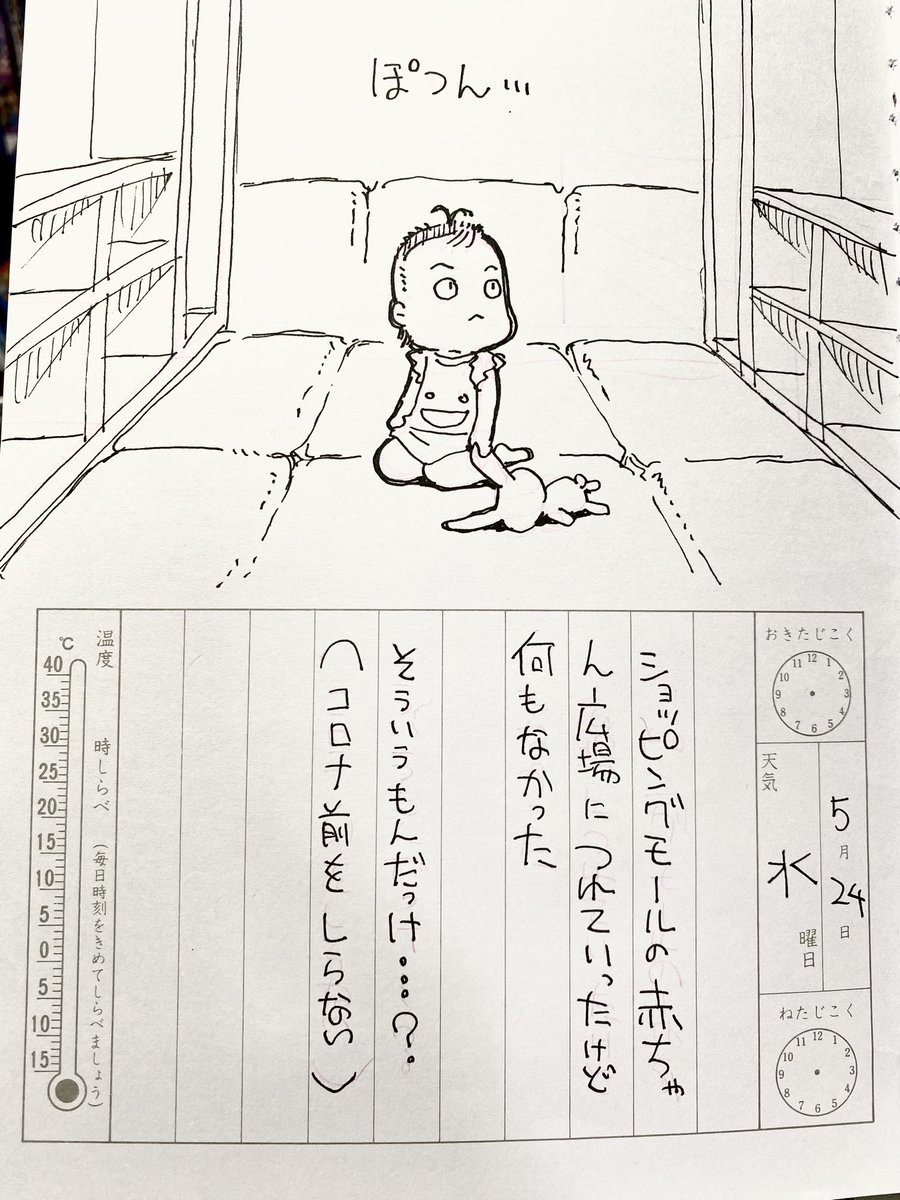 ぽつん…
おきたじこく
12
1
2
3
4
5
6
7
8
9
10
11
5月24日
天気
水曜日
ねたじこく
12
1
2
3
4
5
6
7
8
9
10
11
ショッピングモールの赤ちゃ
ん広場につれていったけど
何もなかった
そういうもんだっけ・・・?
(コロナ前をしらない)
温度
時しらべ
(毎日時刻をきめてしらべましょう)
℃
40
35
30
25
20
15
10
5
0
5
10
15